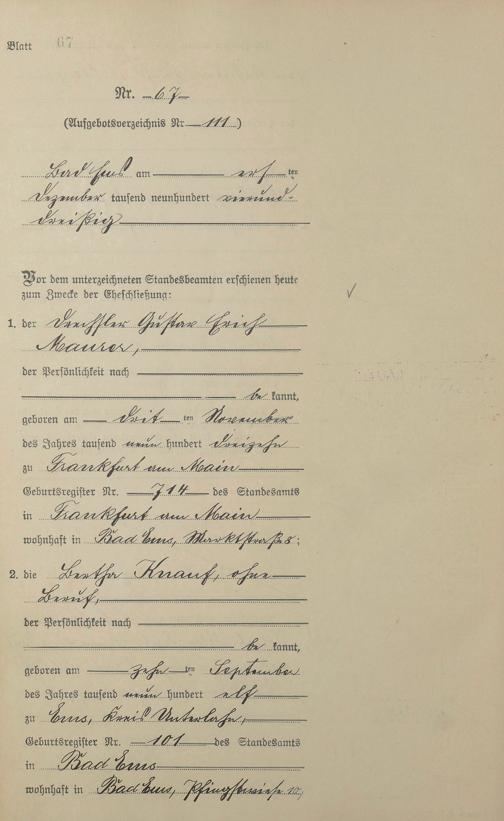 Blatt 67
Nr. 67
(Aufgebotsverzeichnis Nr 111)
Bad Ems am ersten
Dezember tausend neunhundert vierund-
dreißig
Vor dem unterzeichneten Standesbeamten erschienen heute
zum Zwecke der Eheschließung:
1. der Drechsler Gustav Erich
Maurer,
der Persönlichkeit nach
be kannt,
geboren am dritten November
des Jahres tausend neun hundert dreizehn
zu Frankfurt am Main
Geburtsregister Nr. 714 des Standesamts
in Frankfurt am Main
wohnhaft in Bad Ems, Marktstraße 8;
2. die Bertha Knauf, ohne
Beruf,
der Persönlichkeit nach
be kannt,
geboren am zehnten September
des Jahres tausend neun hundert elf
zu Ems, Kreis Unterlahn,
Geburtsregister Nr. 101 des Standesamts
in Bad Ems
wohnhaft in Bad Ems, Pfingstwiese